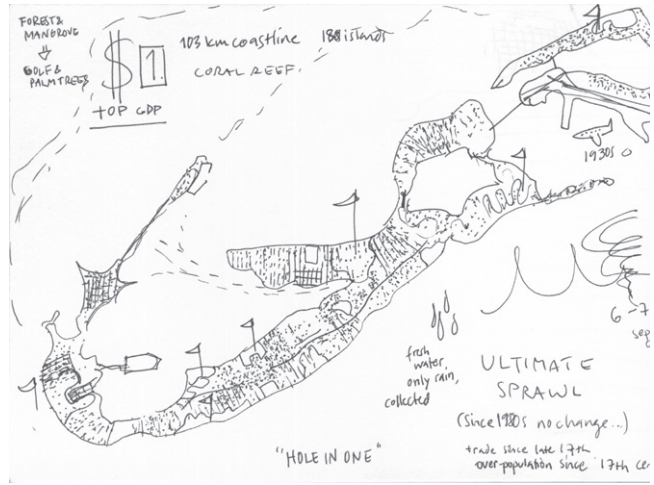 FOREST &
MANGROVE
GOLF &
PALM TREES
$ 1.
TOP GDP
103 km coastline 188 islands
CORAL REEF.
1930s
6-7
fresh
water,
only rain,
collected
ULTIMATE
SPRAWL
(since 1980s no change...)
trade since late 17th
over-population since 17th cen
"HOLE IN ONE"